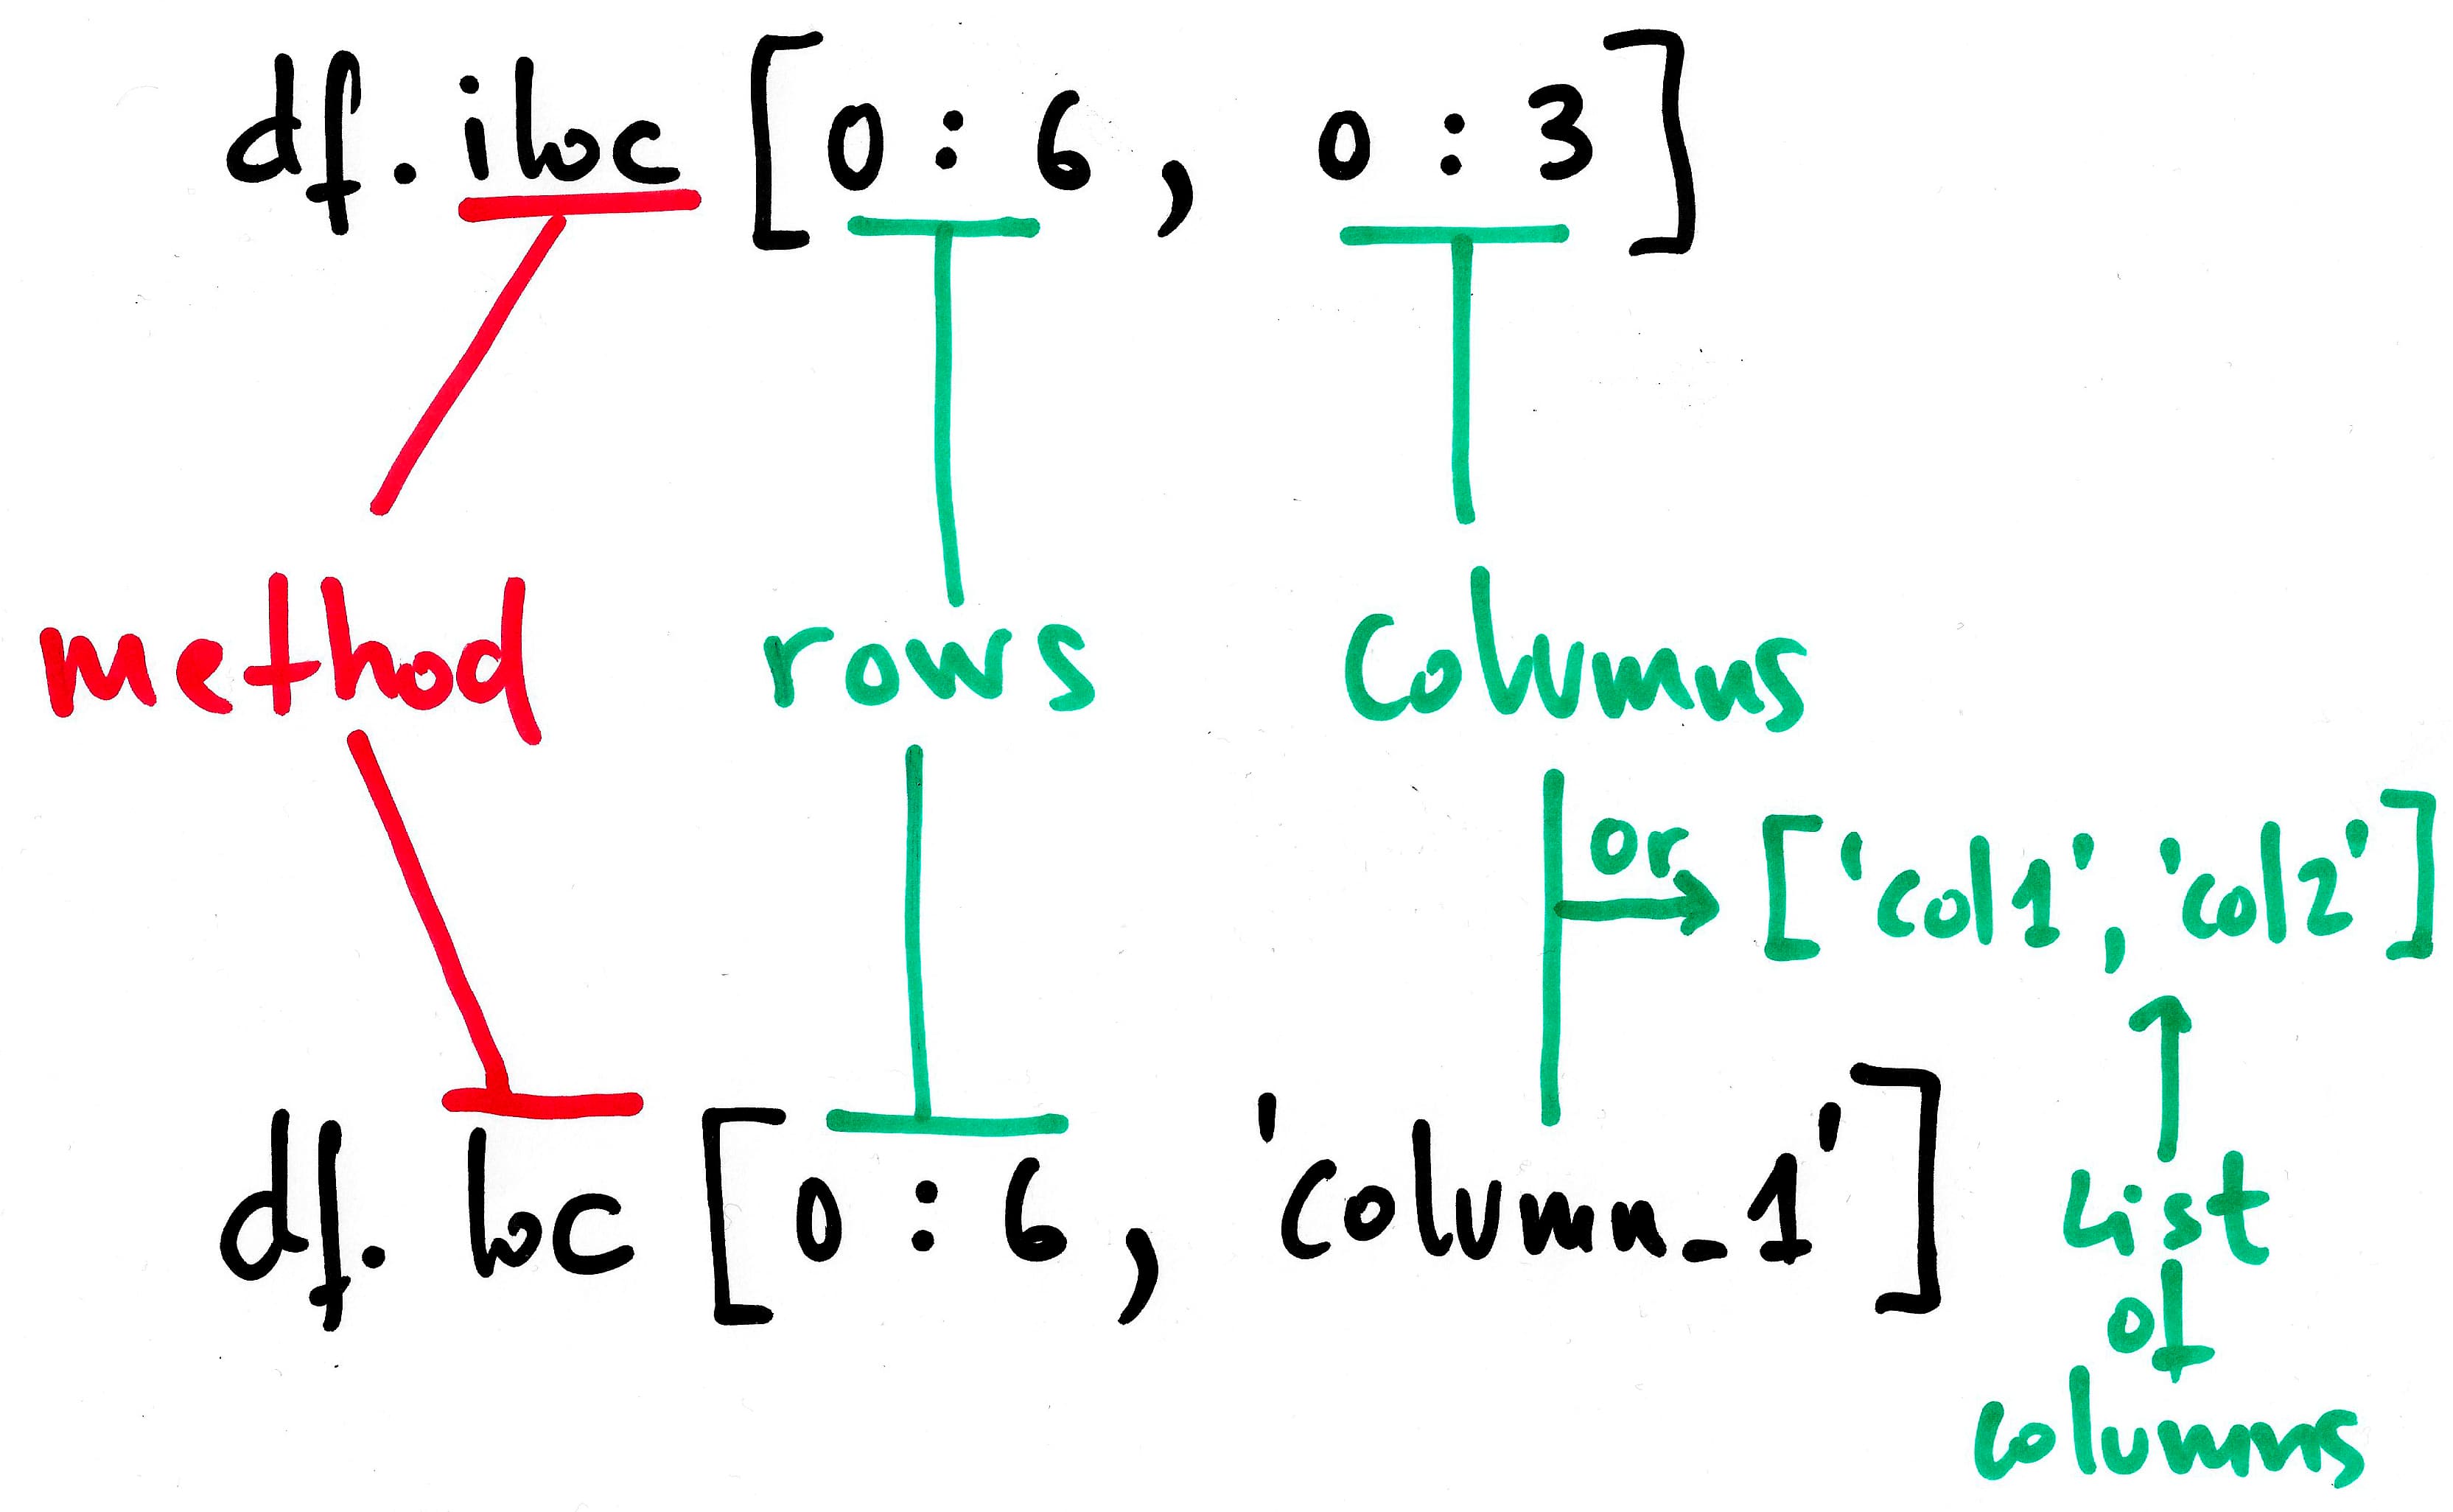 df.iloc [0:6, 0:3]
method rows columns
or ['col1', 'col2']
df.loc [0:6, 'column_1']
list
of
columns